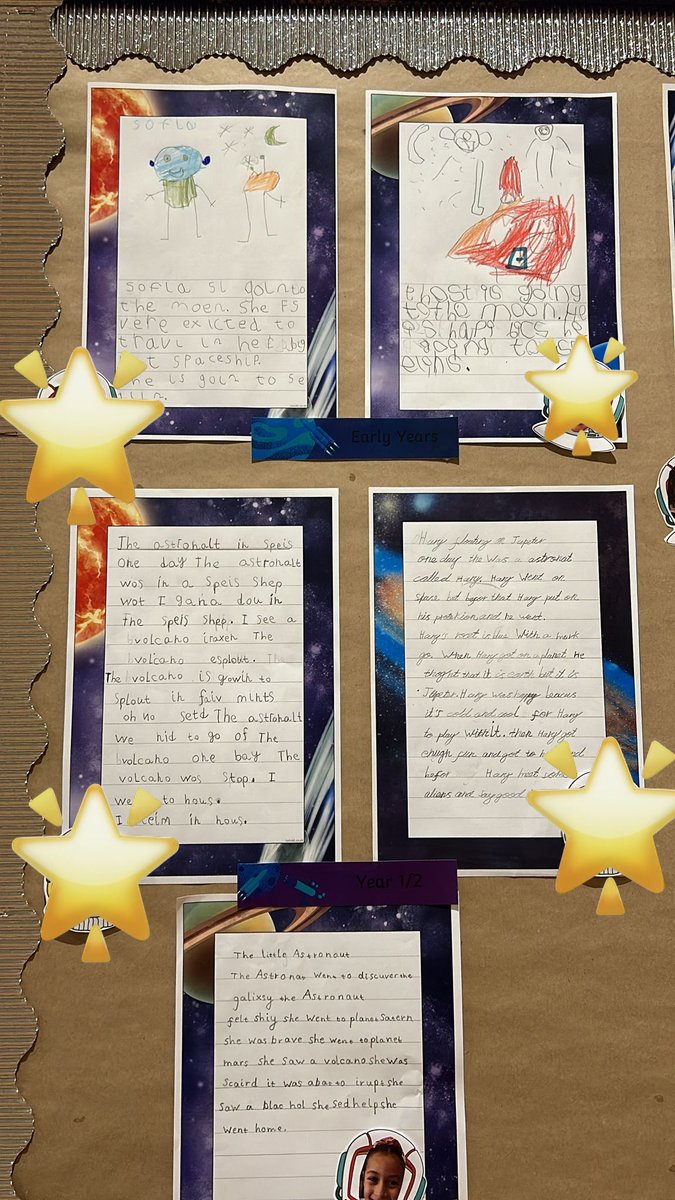 sofia
sofia si goin to
the moen. She FS
vere exicted to
travl in her big
spaceship.
is goin to se
is going
to the moon. He
is hapi
going to
Early Years
The astrohalt in Speis
One day The astrohalt
wos in a Speis Shep
wot I gana dou in
the speis shep. I see a
volcano iraxen The
volcano esplout. The
The volcano is growin to
Splout in faiv mints
oh no setd The astrohalt
we nid to go of The
volcano one bay The
volcano wos Stop. I
we to hous.
I in hous.
Hary floating on Jupter
one day the was a astronat
called Hary. Hary went on
space but befor that Hary put on
his protektion and he went.
Hary's roket is blue With a mark
go. When Hary got on a planet he
thoght that it is earth but it is
Jupter. Hary was happy becaus
it's cold and cool for Hary
to play With it. then Hary got
enugh fun and got to
befor Hary meet som
aliens and say good
Year 1/2
The little Astronaut
The Astronat went to discuver the
galixsy the Astronaut
felt shiy she went to planet Satern
she was brave she went to planet
mars she saw a volcano she was
scaird it was abat to irupt she
saw a blac hol she sed help she
went home.